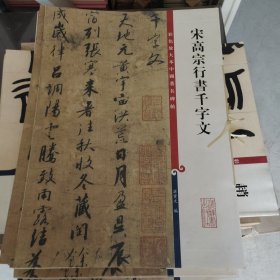 彩色放大本中國著名碑帖
宋高宗行書千字文
千字文
天地元黃宇宙洪荒日月盈昃辰
宿列張寒來暑往秋收冬藏閏餘
成歲律呂調陽雲騰致雨露結